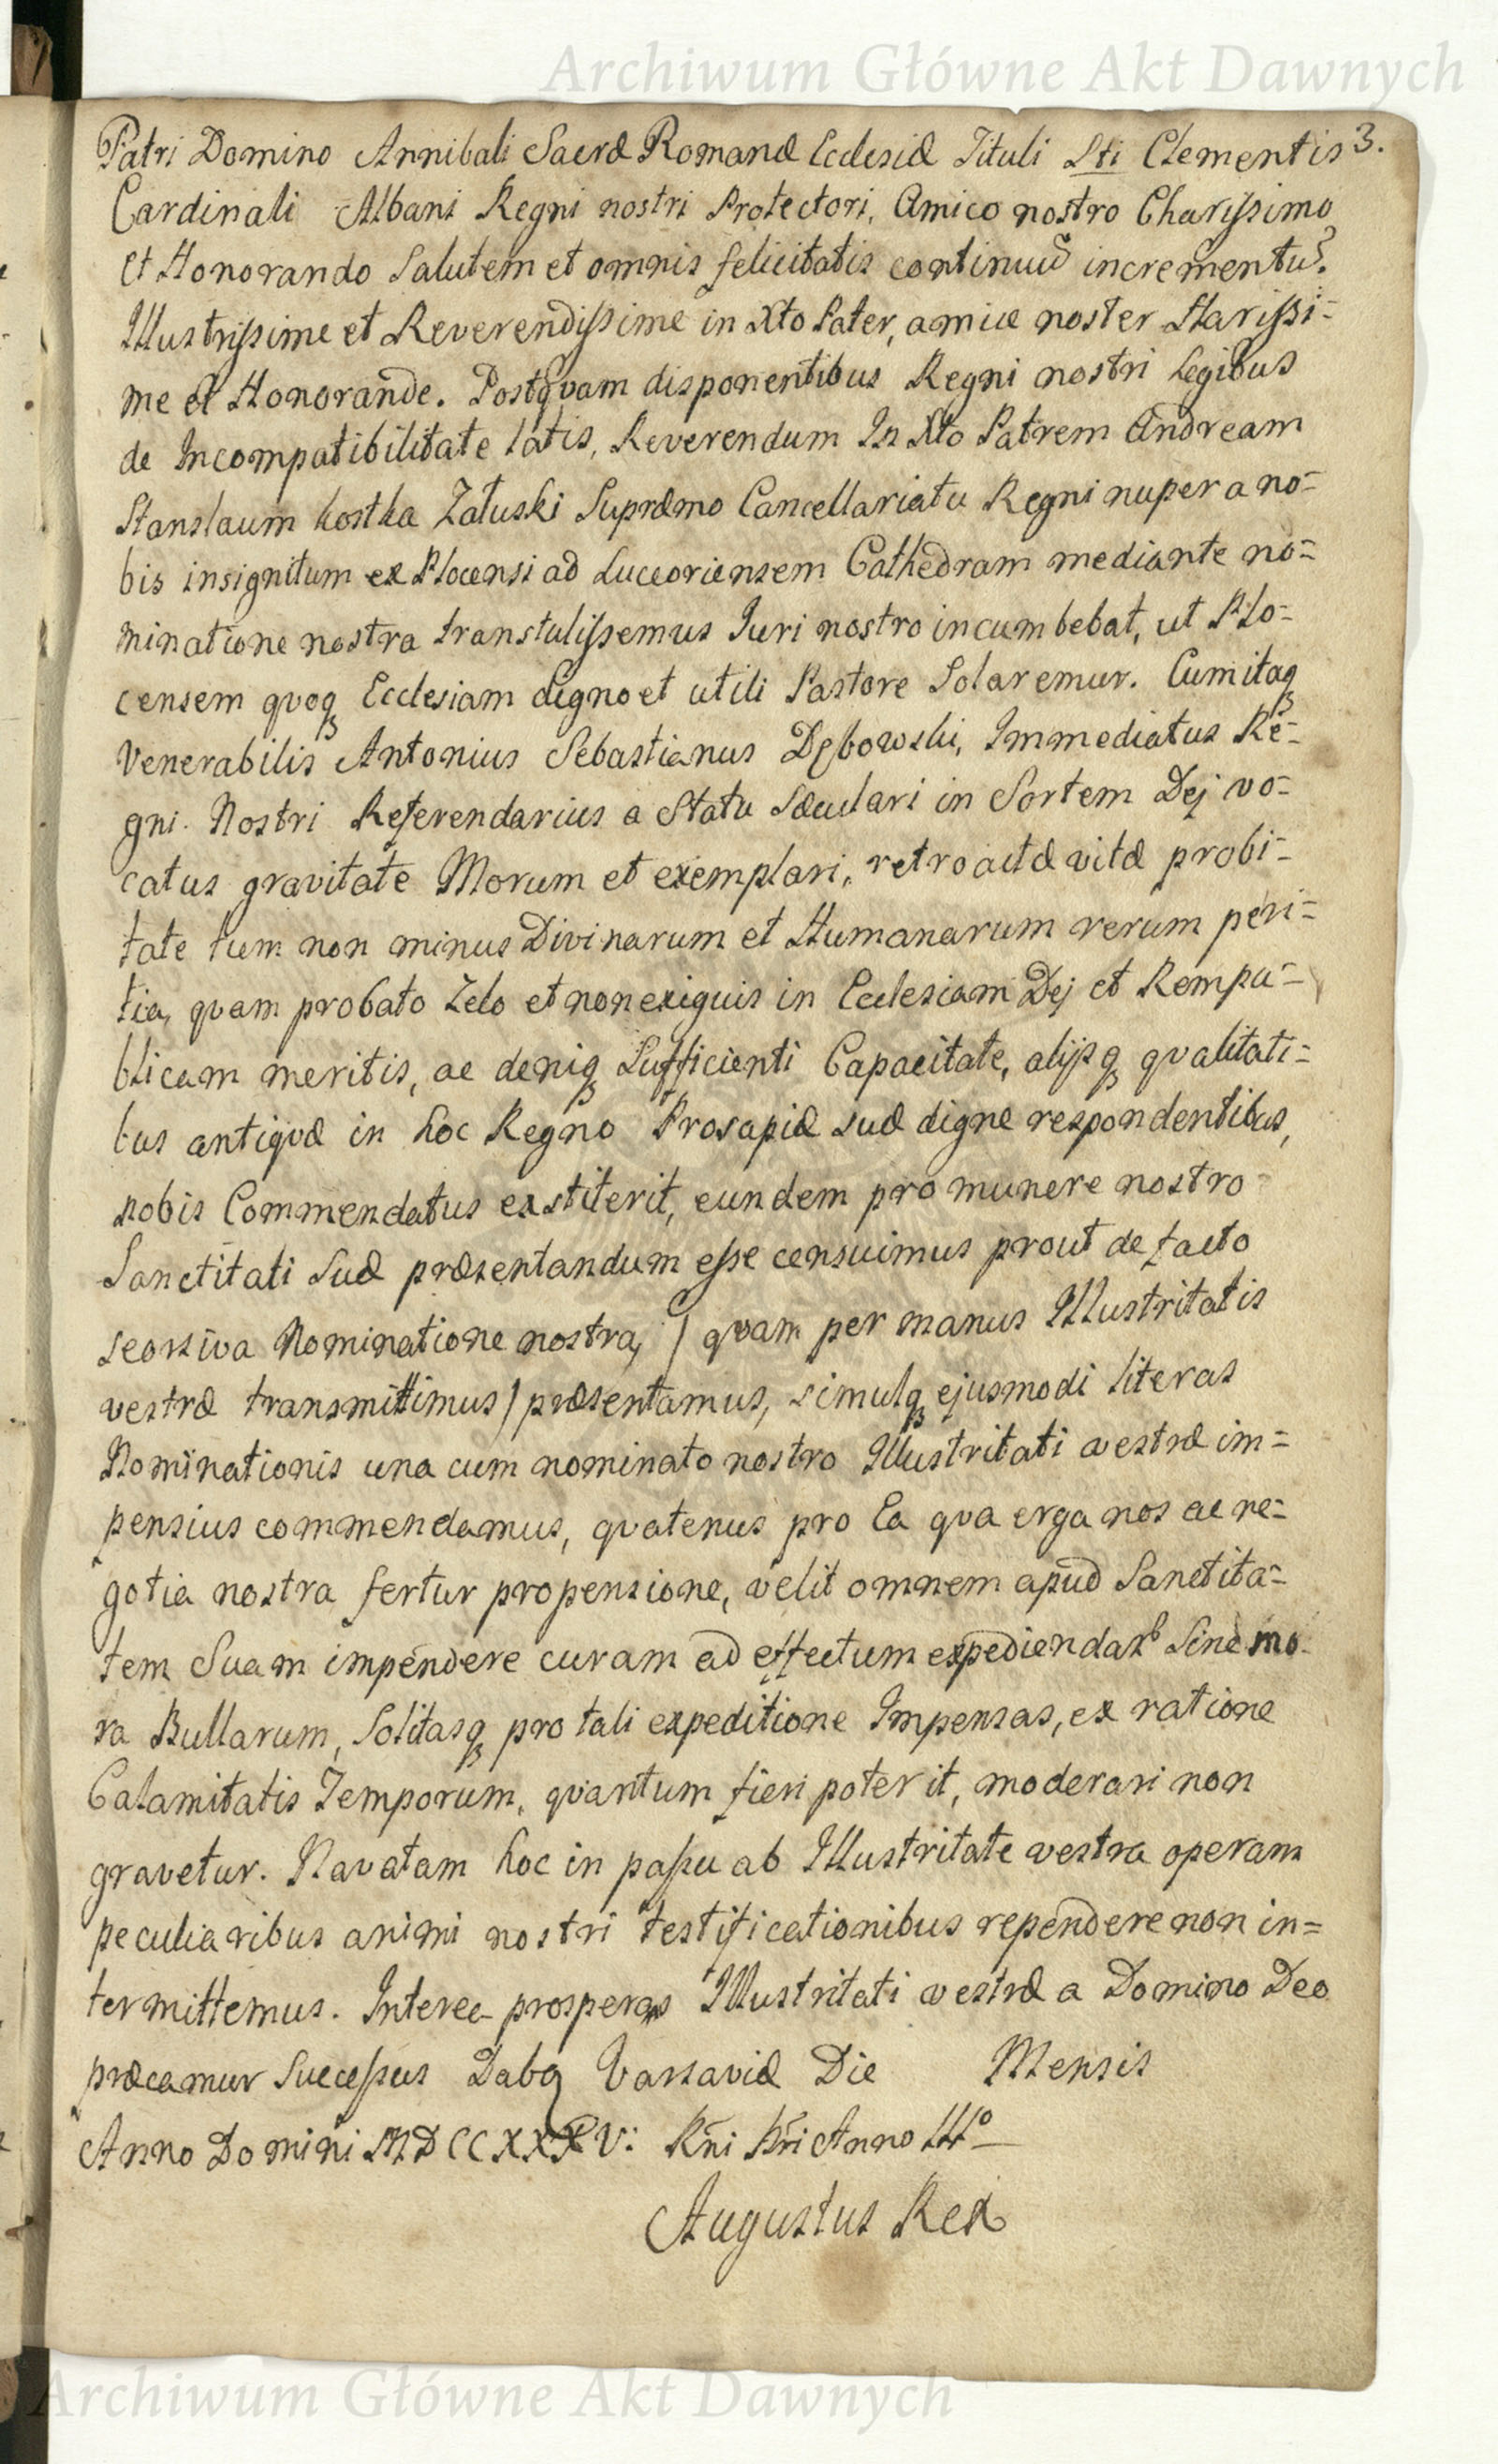 Archiwum Główne Akt Dawnych
3.
Patri Domino Annibali Sacræ Romanæ Ecclesiæ Tituli Sti Clementis
Cardinali Albani Regni nostri Protectori, Amico nostro Charissimo
Et Honorando Salutem et omnis felicitatis continuũ incrementũ.
Illustrissime et Reverendissime in Xto Pater, amice noster Harissi=
me et Honorande. Postqvam disponentibus Regni nostri Legibus
de Incompatibilitate latis, Reverendum In Xto Patrem Andream
Stanslaum Kostka Załuski Supræmo Cancellariatu Regni nuper a no=
bis insignitum ex Plocensi ad Luceoriensem Cathedram mediante no=
minatione nostra transtulissemus Iuri nostro incumbebat, ut Plo=
censem qvoq Ecclesiam digno et utili Pastore Solaremur. Cum itaq
Venerabilis Antonius Sebastianus Dębowski, Immediatus Re=
gni Nostri Referendarius a Statu Sæculari in Sortem Dej vo=
catus gravitate Morum et exemplari, retroactæ vitæ probi=
tate tum non minus Divinarum et Humanarum rerum peri=
tia, qvam probato Zelo et non exiguis in Ecclesiam Dej et Rempu=
blicam meritis, ac deniq Sufficienti Capacitate, alijsq qvalitati=
bus antiqvæ in hoc Regno Prosapiæ suæ digne respondentibus,
nobis Commendatus exstiterit, eundem pro munere nostro
Sanctitati Suæ præsentandum esse censuimus prout de facto
seorsiva Nominatione nostra, / qvam per manus Illustritatis
vestræ transmittimus / præsentamus, simulq ejusmodi literas
Nominationis una cum nominato nostro Illustritati vestræ im=
pensius commendamus, qvatenus pro Ea qva erga nos ac ne=
gotia nostra fertur propensione, velit omnem apud Sanctita=
tem Suam impendere curam ad effectum expediendar Sine mo
ra Bullarum, Solitasq pro tali expeditione Impensas, ex ratione
Calamitatis Temporum, qvantum fieri poterit, moderari non
gravetur. Navatam hoc in passu ab Illustritate vestra operam
peculiaribus animi nostri testificationibus rependere non in=
termittemus. Interea prosperos Illustritati vestræ a Domino Deo
præcamur Successus Dabq Varsaviæ Die Mensis
Anno Domini MDCCXXXV: Rñi Nri Anno IIIo
Augustus Rex
Archiwum Główne Akt Dawnych